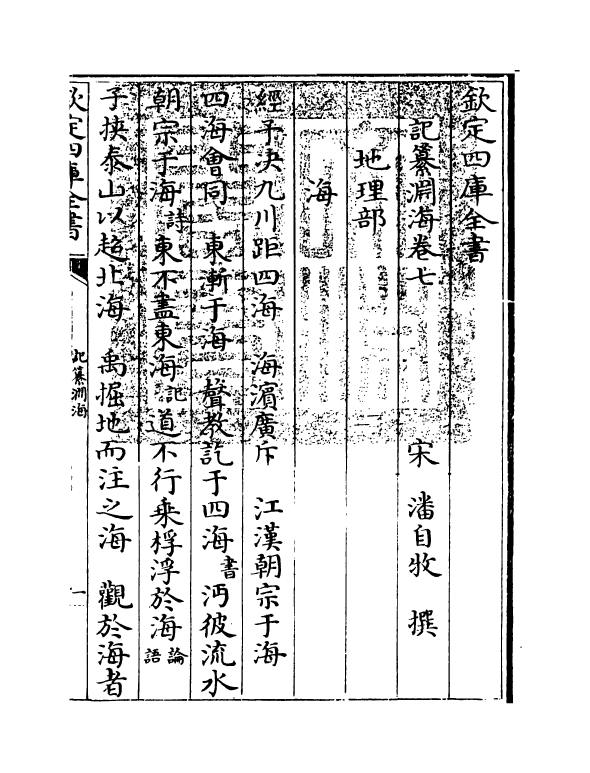 欽定四庫全書
記纂淵海卷七　宋　潘自牧　撰
地理部
海
經予决九川距四海　海濱廣斥　江漢朝宗于海
四海會同　東漸于海　聲教訖于四海書　沔彼流水
朝宗于海詩　東不盡東海記　道不行乘桴浮於海論語
子挾泰山以超北海　禹掘地而注之海　觀於海者
欽定四庫全書
記纂淵海
一